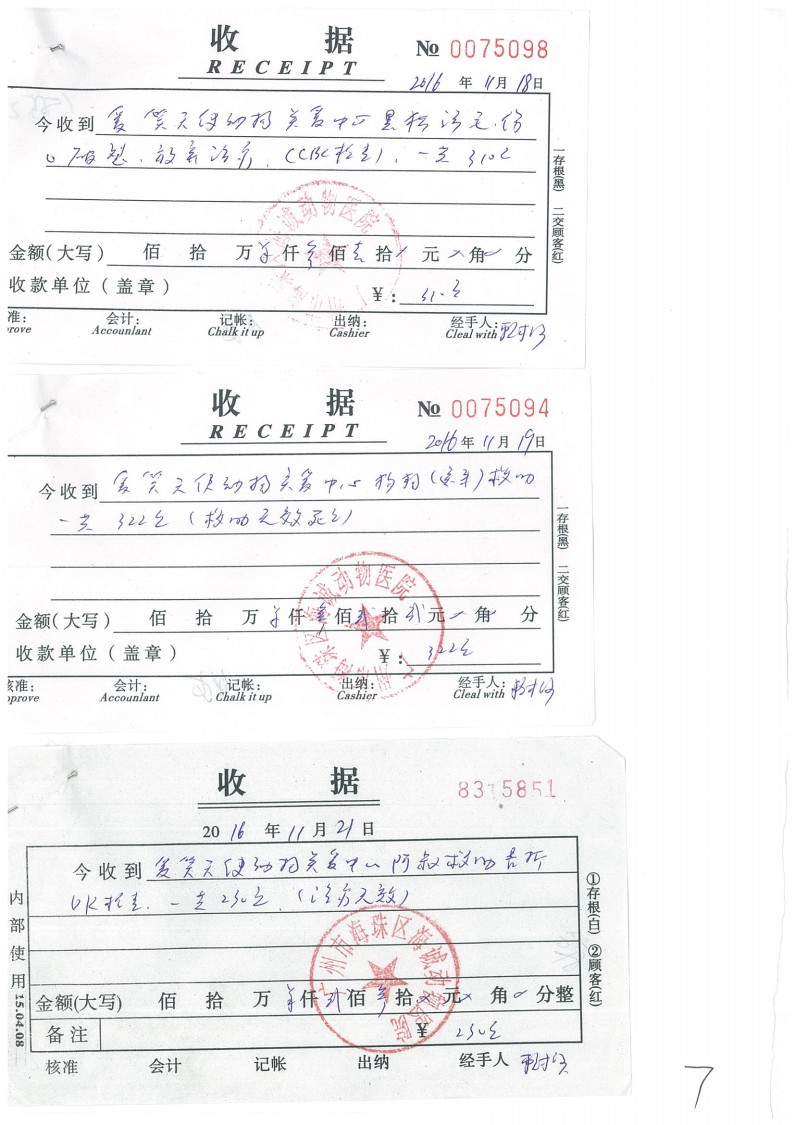 收 据
№ 0075098
RECEIPT
2016 年 11 月 18 日
今收到 爱笑天使动物关爱中心
放弃治疗 (CBC检查), 一共 310元
一存根(黑) 二交顾客(红)
金额(大写) 佰 拾 万 仟 叁 佰 壹 拾 元 角 分
收款单位 (盖章) ¥: 310元
准: 会计: 记帐: 出纳: 经手人:
rove Accountant Chalk it up Cashier Cleal with
收 据
№ 0075094
RECEIPT
2016 年 11 月 19 日
今收到 爱笑天使动物关爱中心 救助
一共 322元 (救助无效死亡)
一存根(黑) 二交顾客(红)
金额(大写) 佰 拾 万 仟 叁 佰 贰 拾 贰 元 角 分
收款单位 (盖章) ¥: 322元
核准: 会计: 记帐: 出纳: 经手人:
pprove Accountant Chalk it up Cashier Cleal with
收 据
8315851
2016 年 11 月 21 日
今收到 爱笑天使动物关爱中心 阿叔救助
检查, 一共 230元, (治疗无效)
内部使用
15.04.08
①存根(白) ②顾客(红)
金额(大写) 佰 拾 万 仟 贰 佰 叁 拾 元 角 分整
备注 ¥ 230元
核准 会计 记帐 出纳 经手人
广州市海珠区海诚动物医院
7